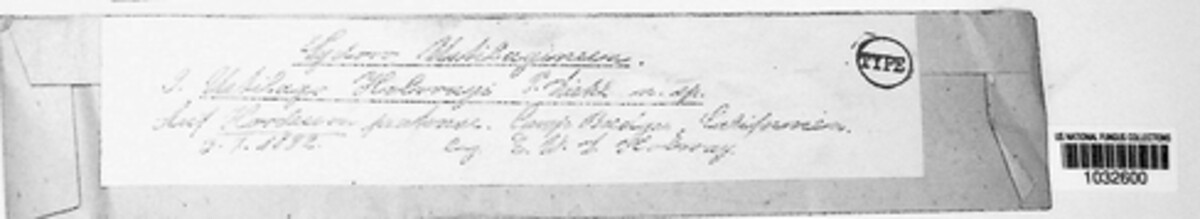 Sydow Ustilagineen.
TYPE
I. Ustilago Holwayi P. Diet. n. sp.
Auf Hordeum pratense. Camp Badger, Californien.
1892. leg. E. W. D. Holway
US NATIONAL FUNGUS COLLECTIONS
1032600